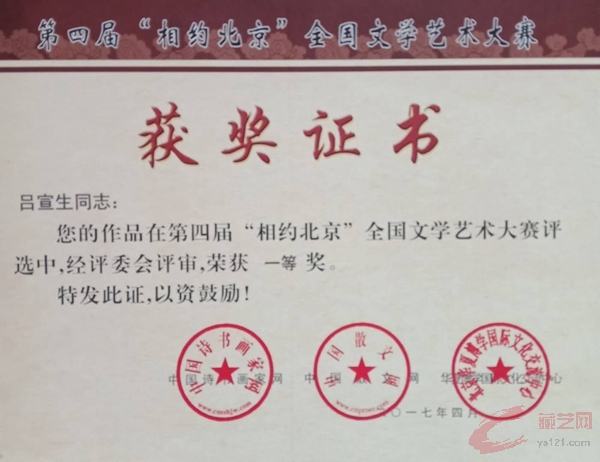 第四届“相约北京”全国文学艺术大赛
获奖证书
吕宣生同志：
您的作品在第四届“相约北京”全国文学艺术大赛评
选中,经评委会评审,荣获 一等 奖。
特发此证,以资鼓励!
中国诗书画家网
中国散文网
北京华夏博学国际文化交流中心
中国诗书画家网 中国散文网 华夏博学国际文化交流中心
二〇一七年四月
藏艺网
ya121.com